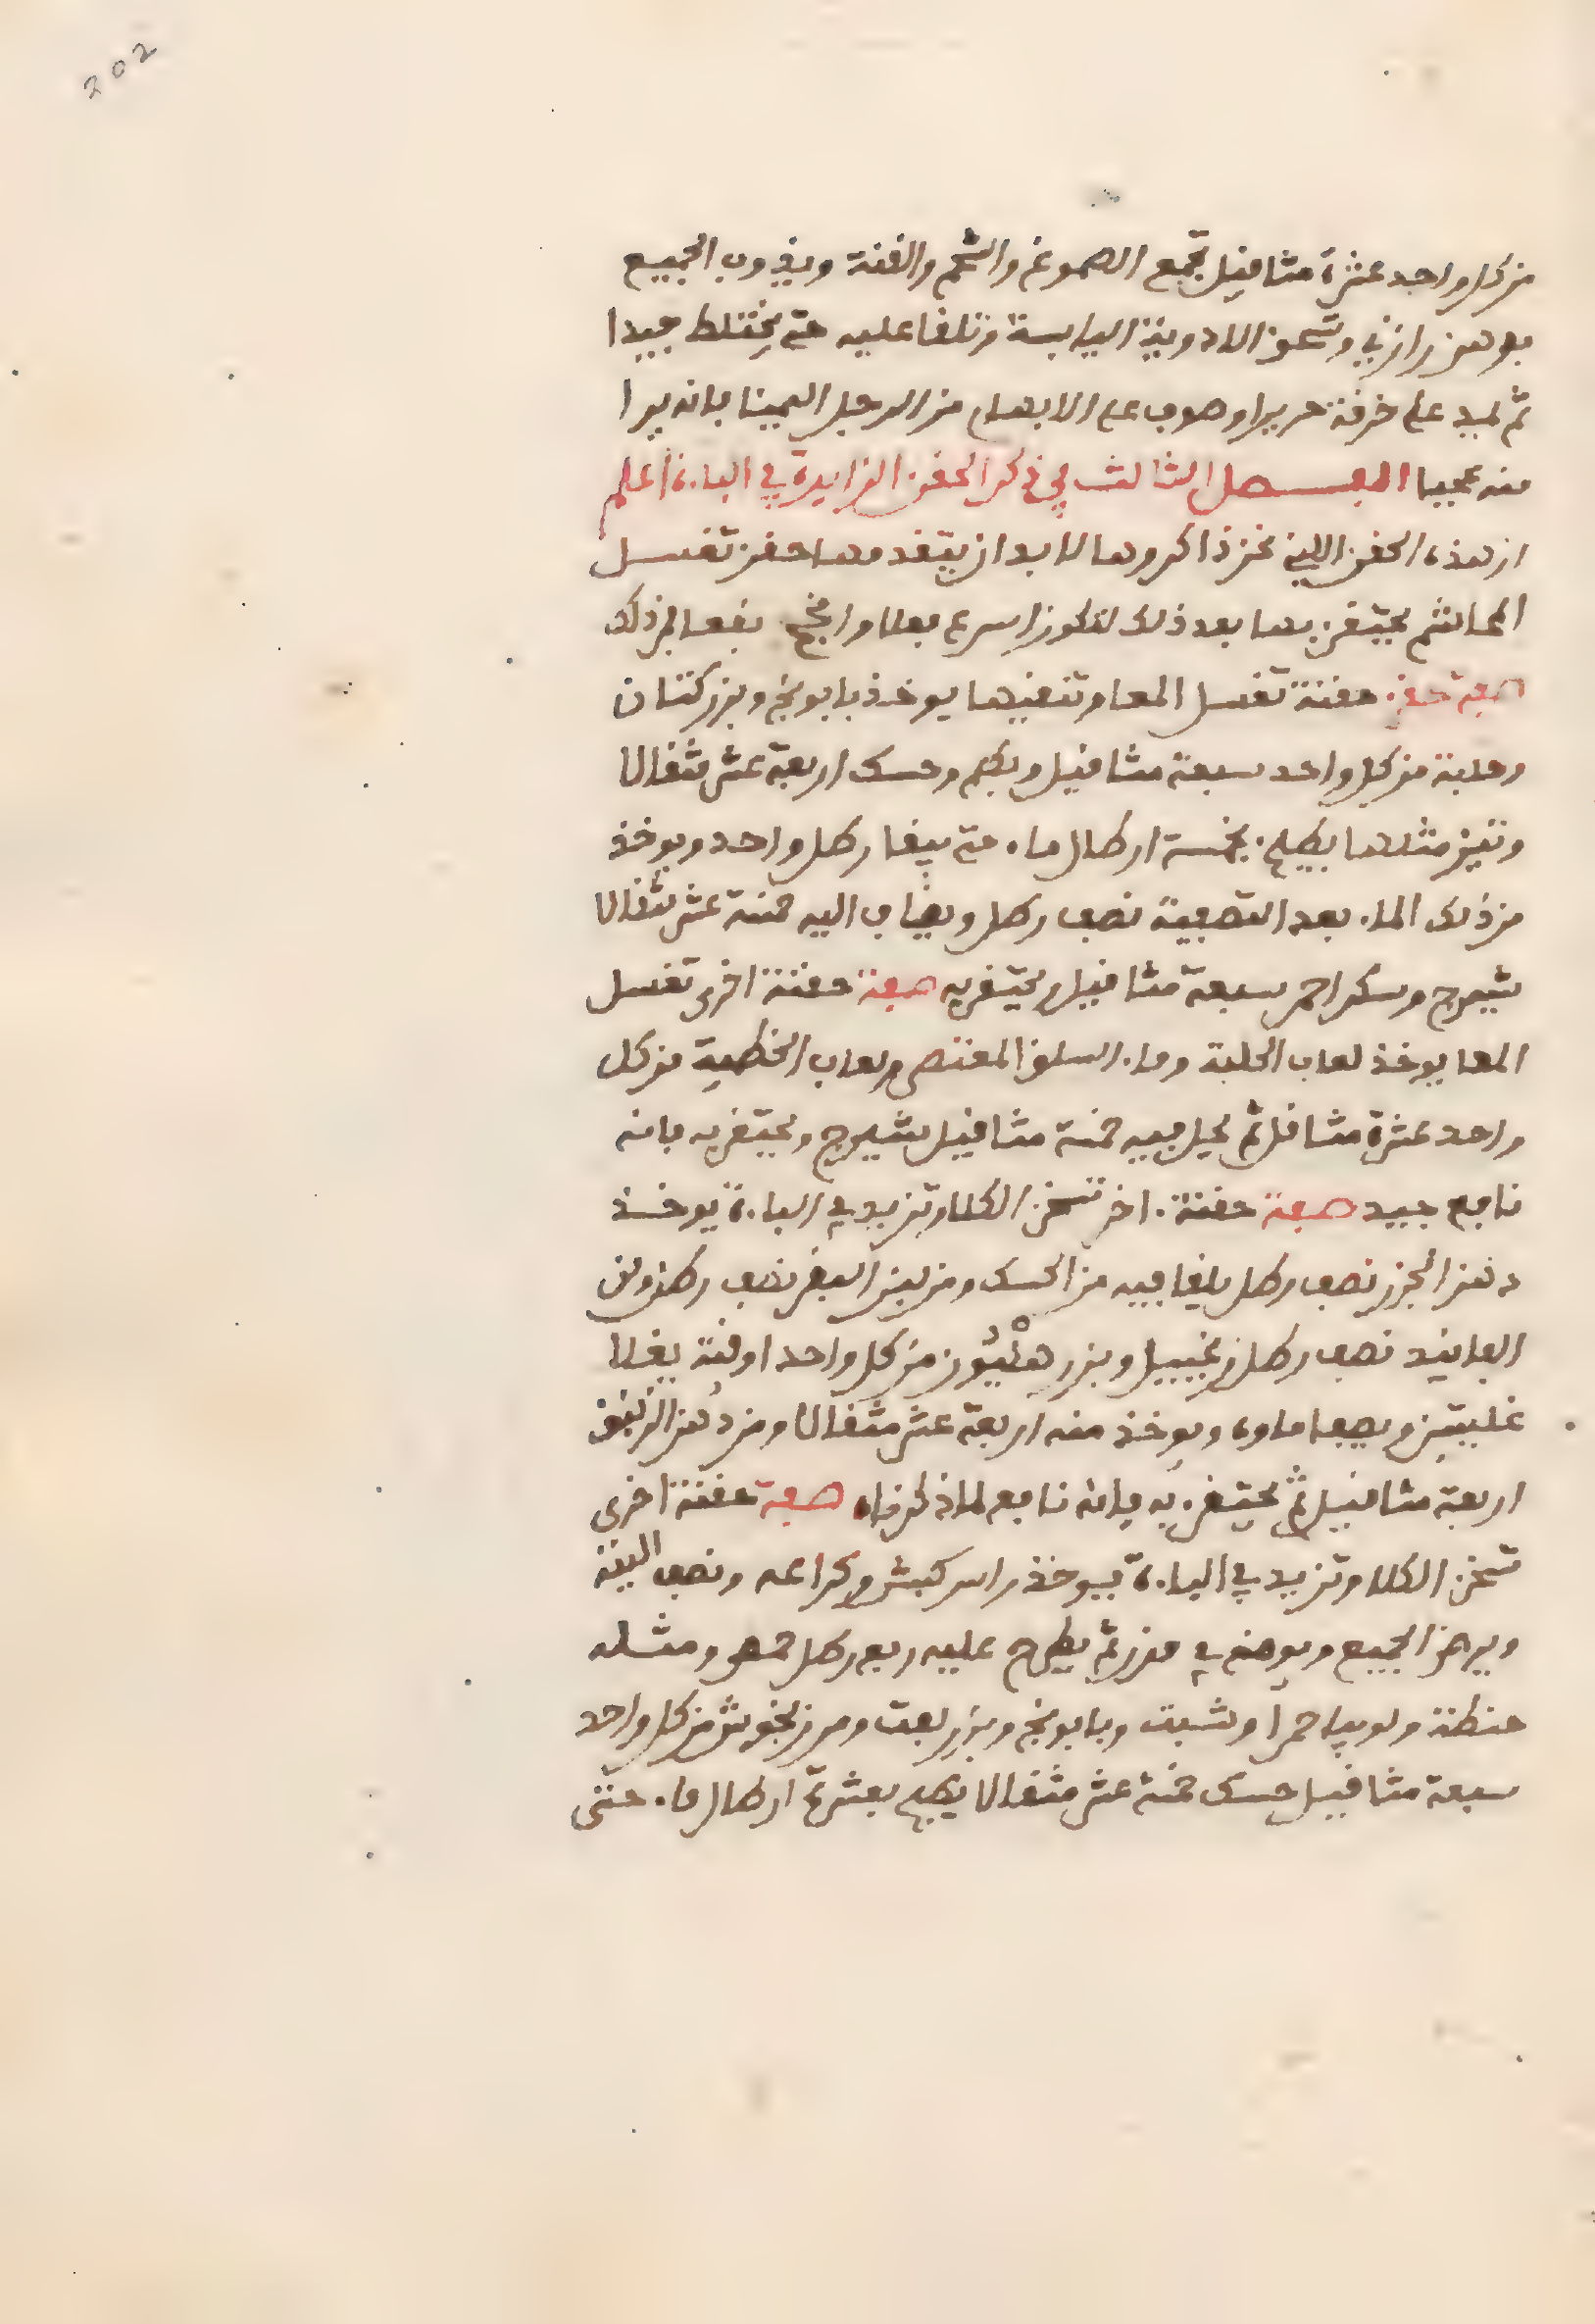 202
من كل واحد عشرة مثاقيل تجمع الصموغ والشحم والقنة ويذوب الجميع
بدهن رازقي وتسحق الادوية اليابسة وتلقا عليه حتى يختلط جيدا
ثم لبد على خرقة حرير او صوف على الابهام من الرجل اليمنا فانه يرا
منه عجبا الفصل الثالث في ذكر الحقن الزايدة في الباءة اعلم
ان هذه الحقن التي نحن ذاكروها لا بد ان يتقدمها حقن تغسل
المعا ثم يحتقن بها بعد ذلك لتكون اسرع فعلا وانجح نفعا فمن ذلك
صفة حقن حقنة تغسل المعا وتنقيها يوخذ بابونج وبزر كتان
وحلبة من كل واحد سبعة مثاقيل وحسك اربعة عشر مثقالا
وتين مثلها يطبخ بخمسة ارطال ماء حتى يبقا رطل واحد ويوخذ
من ذلك الماء بعد التصفية نصف رطل ويضاف اليه خمسة عشر مثقالا
شيرج وسكر احمر سبعة مثاقيل ويحتقن به صفة حقنة اخرى تغسل
المعا يوخذ لعاب الحلبة وماء السلق المعتصر ولعاب الخطمية من كل
واحد عشرة مثاقل ثم يحل فيه خمسة مثاقيل شيرج ويحتقن به فانه
نافع جيد صفة حقنة اخر تسخن الكلا وتزيد في الباءة يوخذ
دهن الجزر نصف رطل يلقا فيه من الحسك ومن لبن البقر نصف رطل ومن
الفانيد نصف رطل زنجبيل وبزر هليون من كل واحد اوقية يغلا
غليتين ويصفا ماوه ويوخذ منه اربعة عشر مثقالا ومن دهن الزنبق
اربعة مثاقيل ثم يحتقن به فانه نافع لما ذكرناه صفة حقنة اخرى
تسخن الكلا وتزيد في الباءة يوخذ راس كبش وكراعه ونصف الية
ويرض الجميع ويوضع في قدر ثم يطرح عليه ربع رطل حمص ومثله
حنطة ولوبيا حمرا وشبت وبابونج وبزر لفت ومرزنجوش من كل واحد
سبعة مثاقيل حسك خمسة عشر مثقالا يطبخ بعشرة ارطال ماء حتى